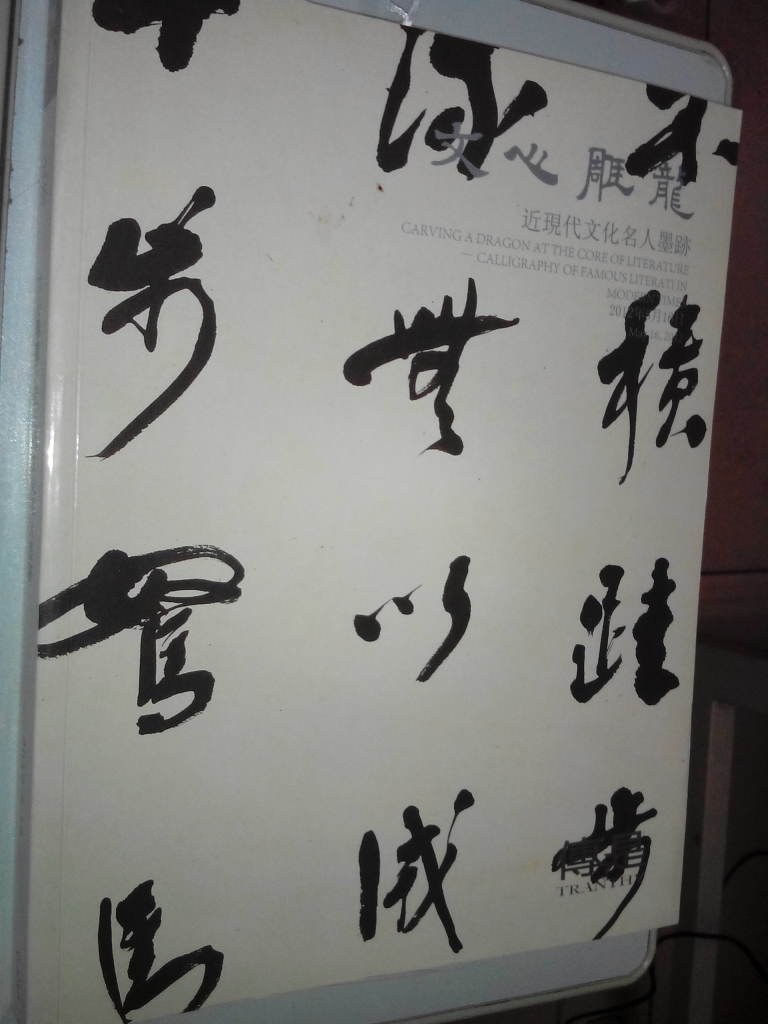 文心雕龍
近現代文化名人墨跡
CARVING A DRAGON AT THE CORE OF LITERATURE
— CALLIGRAPHY OF FAMOUS LITERATI IN
MODERN TIMES
2012年5月16日
May 16, 20
不積跬步
無以成
步駑馬
傳是
TRANTHY